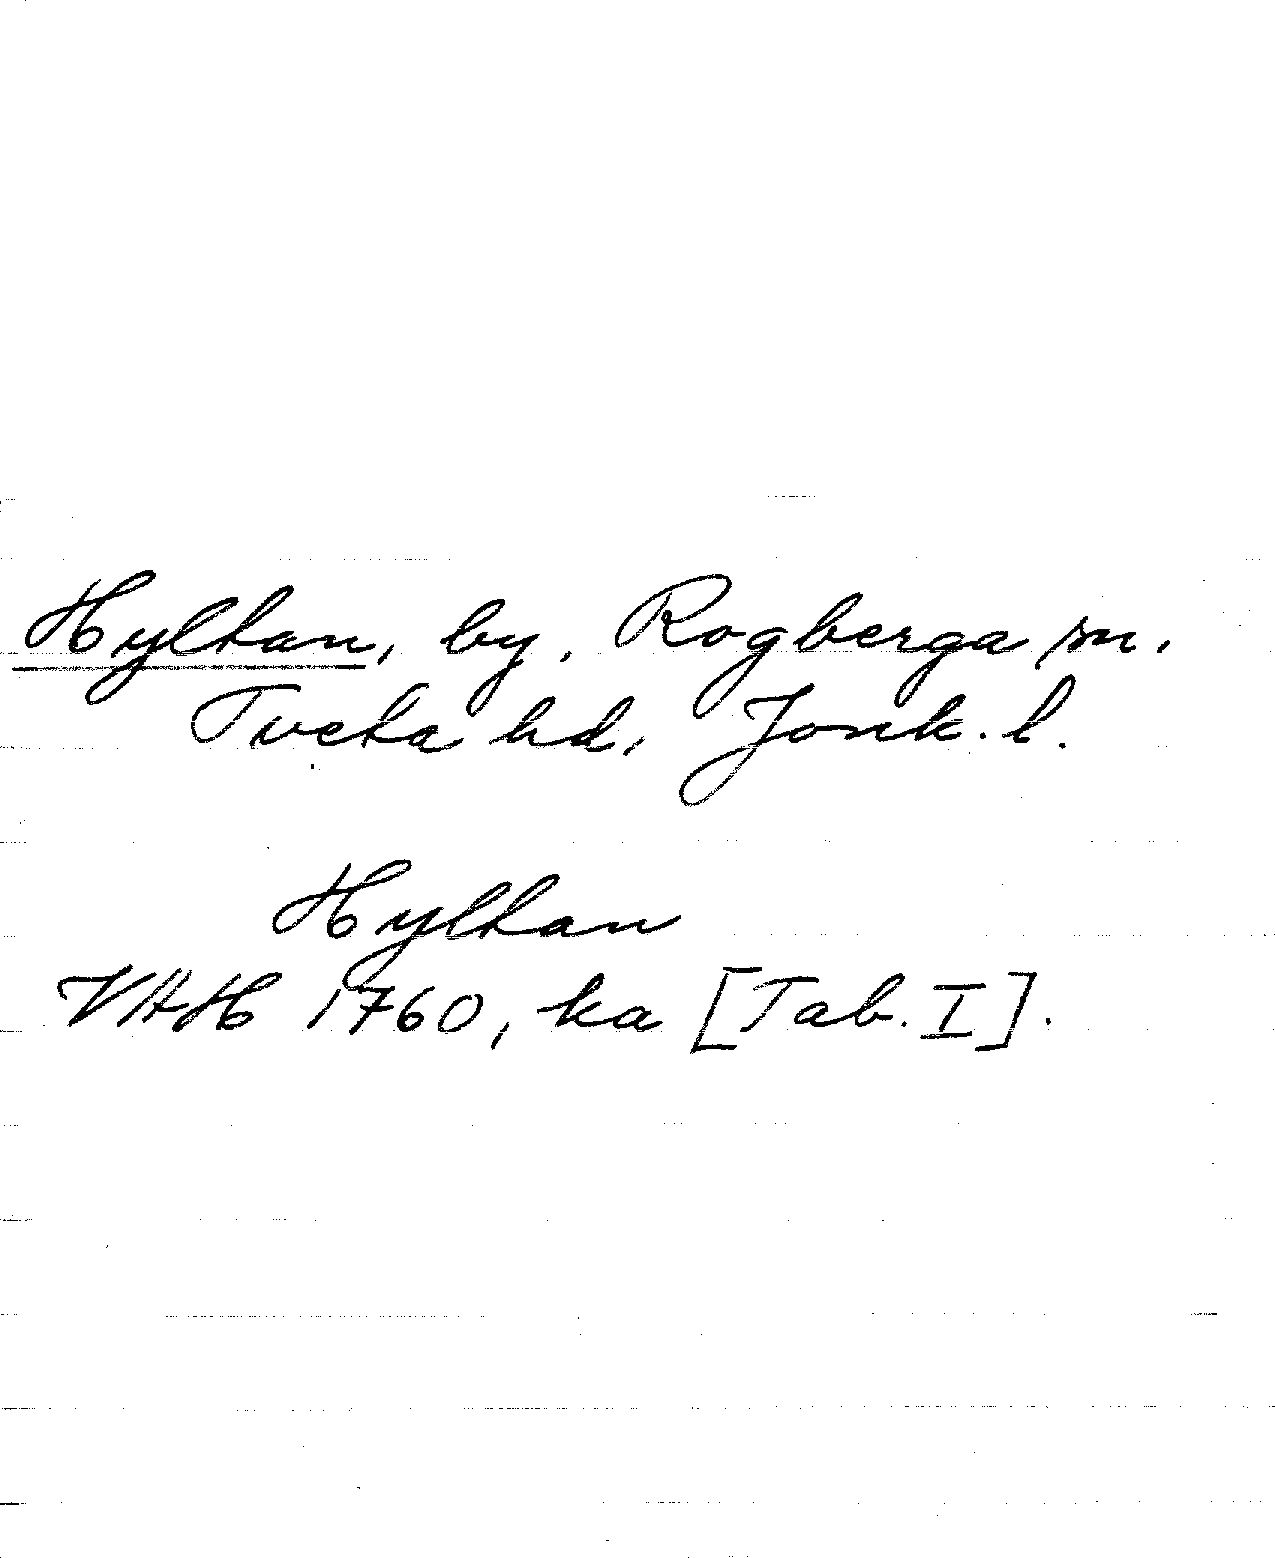 Hyltan, by. Rogberga sn.
Tveta hd, Jonk. l.
Hyltan
VAH 1760, ka [Tab. I].